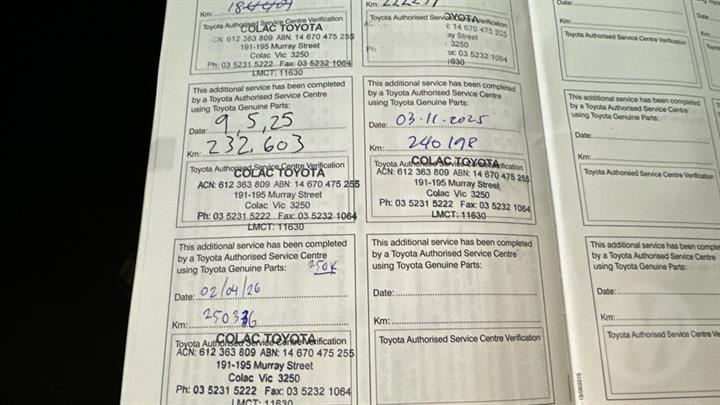 Km:
Toyota Authorised Service Centre Verification
COLAC TOYOTA
ACN 612 363 809 ABN: 14 670 475 255
191-195 Murray Street
Colac Vic 3250
Ph: 03 5231 5222 Fax: 03 5232 1064
LMCT: 11630
Km:
Toyota Authorised Service
TOYOTA
14 670 475 255
ay Street
3250
ox: 03 5232 1064
1630
Date:
Km:
Toyota Authorised Service Centre Verification
This additional service has been completed
by a Toyota Authorised Service Centre
using Toyota Genuine Parts:
Date: 9,5,25
Km: 232,603
Toyota Authorised Service Centre Verification
COLAC TOYOTA
ACN: 612 363 809 ABN: 14 670 475 255
191-195 Murray Street
Colac Vic 3250
Ph: 03 5231 5222 Fax: 03 5232 1064
LMCT: 11630
This additional service has been completed
by a Toyota Authorised Service Centre
using Toyota Genuine Parts:
Date: 03-11-2025
Km: 240198
Toyota Authorised Service Centre Verification
COLAC TOYOTA
ACN: 612 363 809 ABN: 14 670 475 255
191-195 Murray Street
Colac Vic 3250
Ph: 03 5231 5222 Fax: 03 5232 1064
LMCT: 11630
This additional service has been completed
by a Toyota Authorised Service Centre
using Toyota Genuine Parts:
Date:
Km:
Toyota Authorised Service Centre Verification
This additional service has been completed
by a Toyota Authorised Service Centre
using Toyota Genuine Parts: 250K
Date: 02/04/26
Km: 250336
Toyota Authorised Service Centre Verification
COLAC TOYOTA
ACN: 612 363 809 ABN: 14 670 475 255
191-195 Murray Street
Colac Vic 3250
Ph: 03 5231 5222 Fax: 03 5232 1064
LMCT: 11630
This additional service has been completed
by a Toyota Authorised Service Centre
using Toyota Genuine Parts:
Date:
Km:
Toyota Authorised Service Centre Verification
This additional service has been comple
by a Toyota Authorised Service Centre
using Toyota Genuine Parts:
Date:
Km:
Toyota Authorised Service Centre Ve